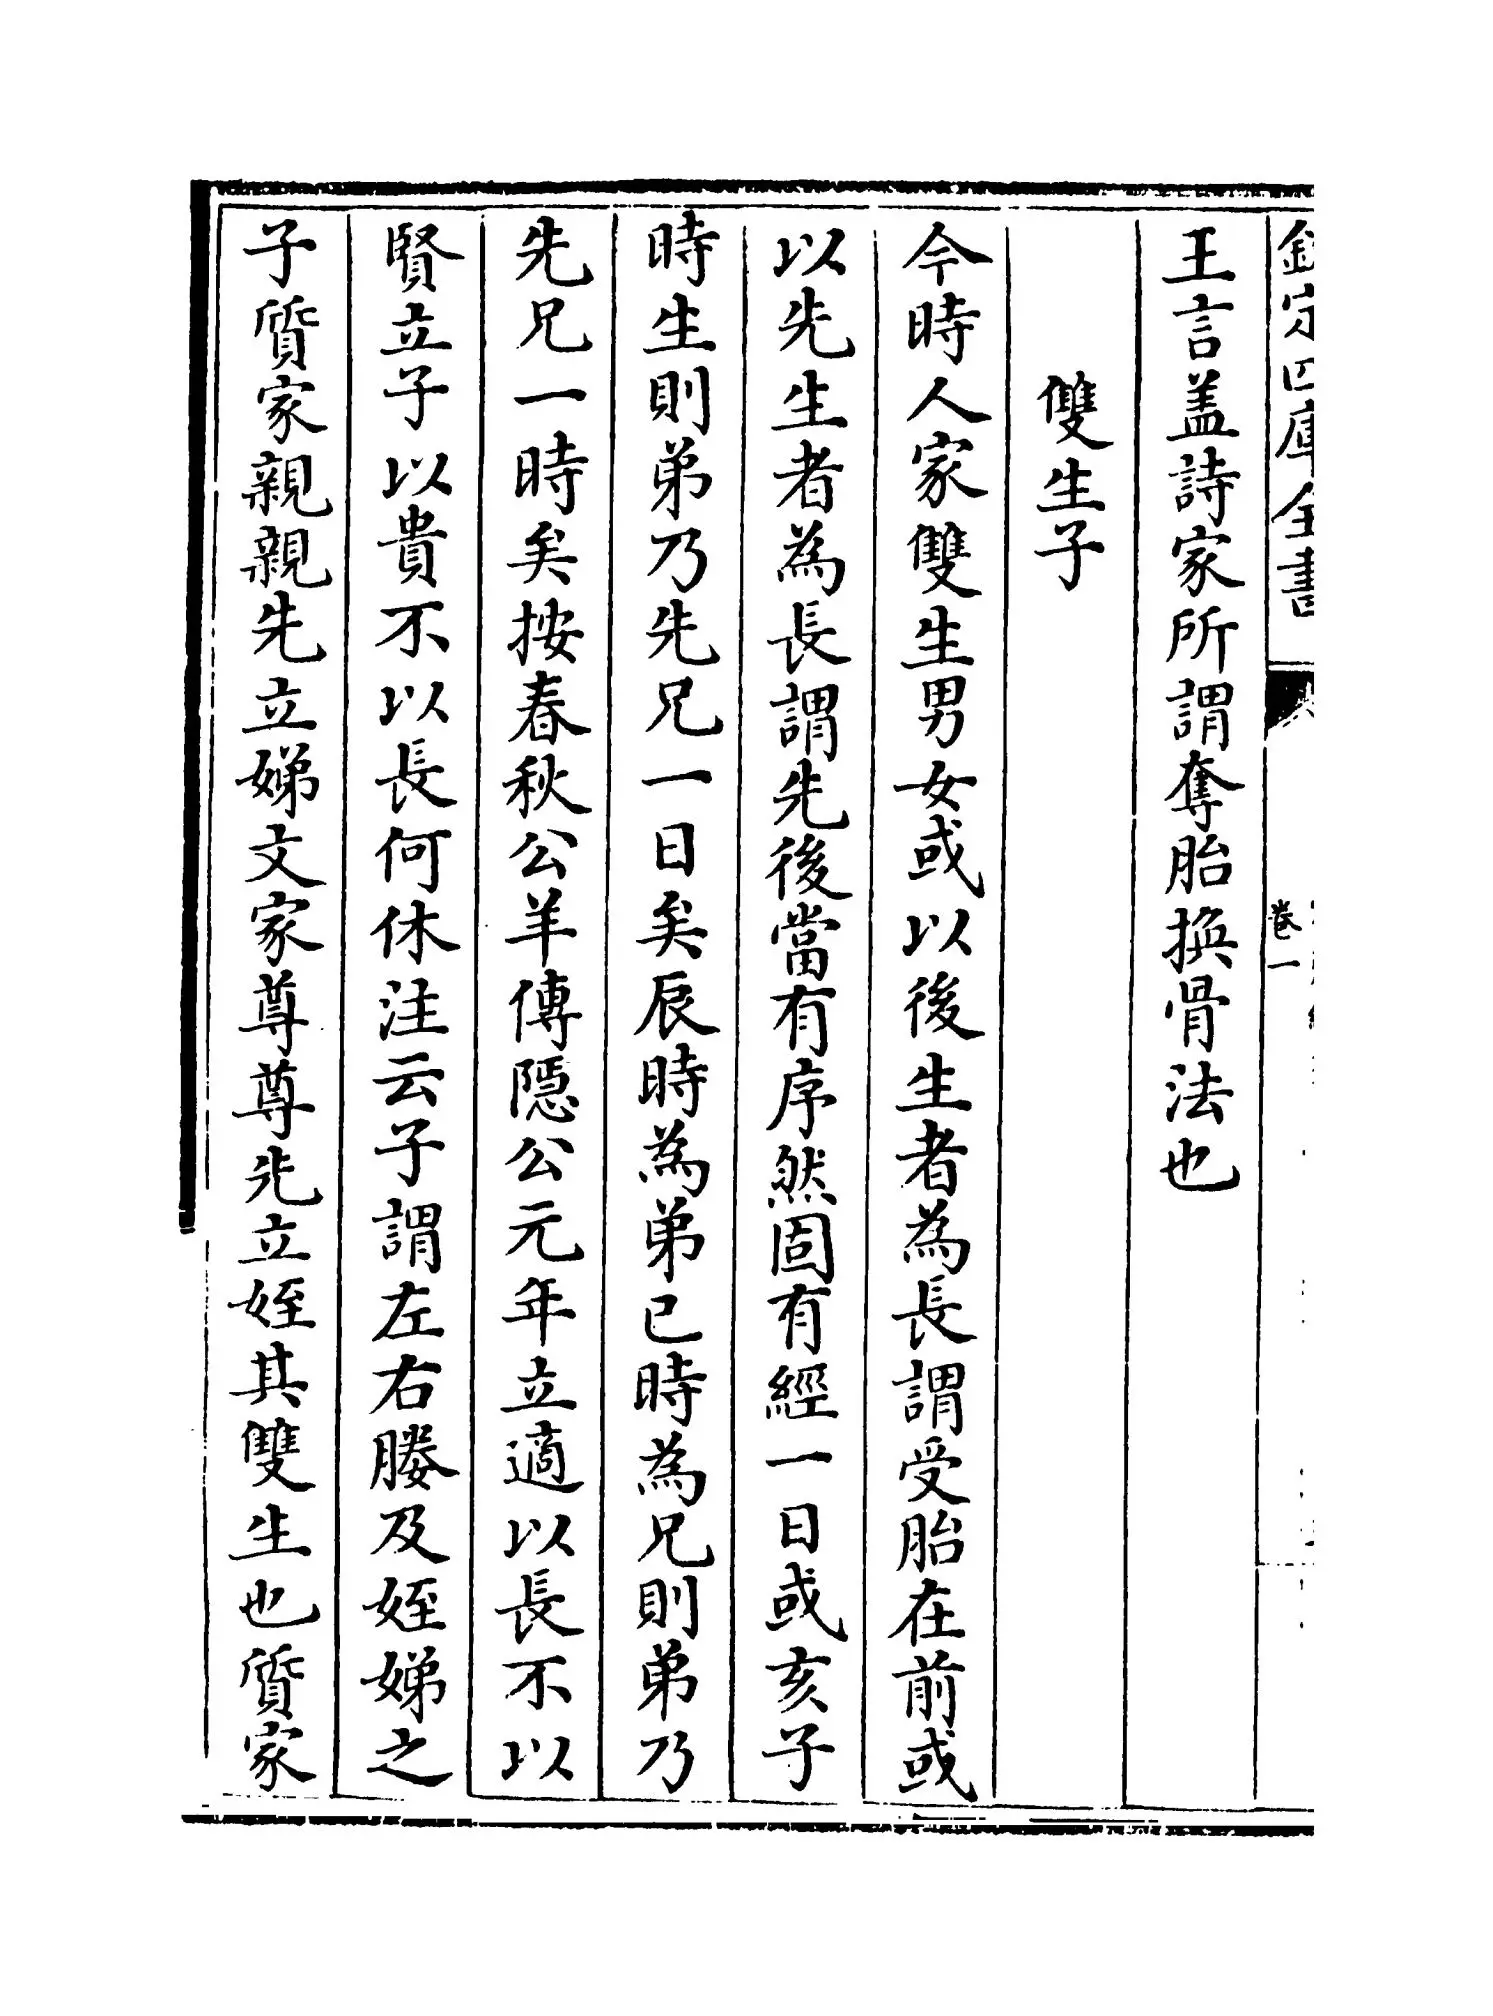 欽定四庫全書
卷一
王言盖詩家所謂奪胎換骨法也
雙生子
今時人家雙生男女或以後生者為長謂受胎在前或
以先生者為長謂先後當有序然固有經一日或亥子
時生則弟乃先兄一日矣辰時為弟已時為兄則弟乃
先兄一時矣按春秋公羊傳隱公元年立適以長不以
賢立子以貴不以長何休注云子謂左右媵及姪娣之
子質家親親先立娣文家尊尊先立姪其雙生也質家